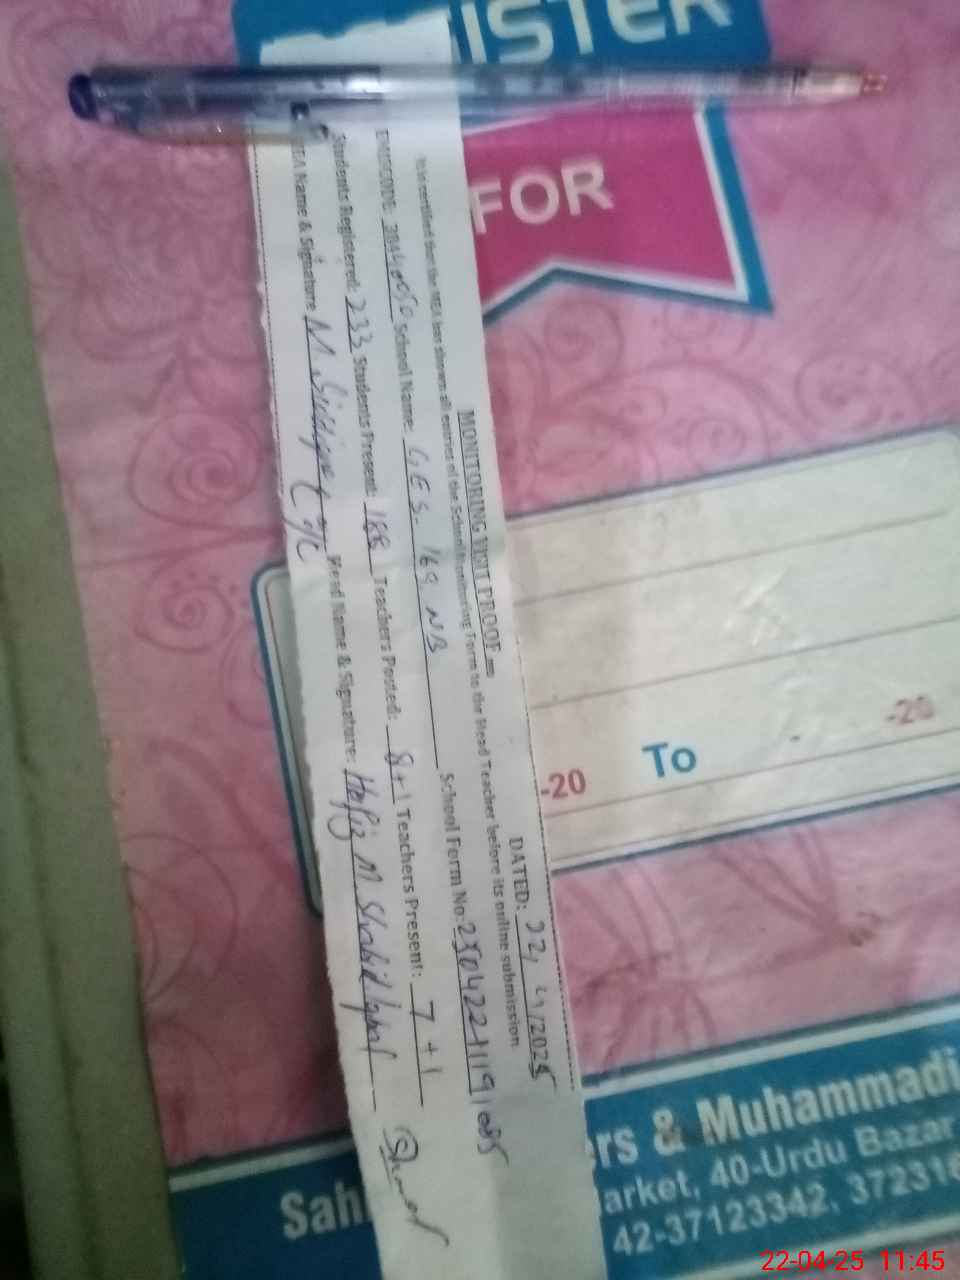 GISTER
FOR
MONITORING VISIT PROOF
DATED: 22, 4/2025
It is certified that the MEA has shown all entries of the School Monitoring Form to the Head Teacher before its online submission.
EMISCODE: School Name: G E S. 169 NB School Form No:
Students Registered: 233 Students Present: 188 Teachers Posted: 8+1 Teachers Present: 7+1
MEA Name & Signature: M. Head Name & Signature: Hafiz M. Shahid Iqbal
-20 To -20
ers & Muhammadi
Sah arket, 40-Urdu Bazar
42-37123342, 37231
22-04-25 11:45